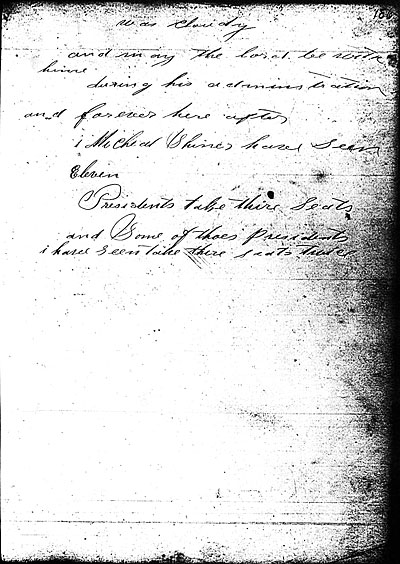 was cloudy
and may the lord be with
himе
during his administration
and forever here after
i Micheal Shiner have Seen
Eleven
Presidents take thire Seats
and Some of thoes presidents
i have Seen take there seats twice